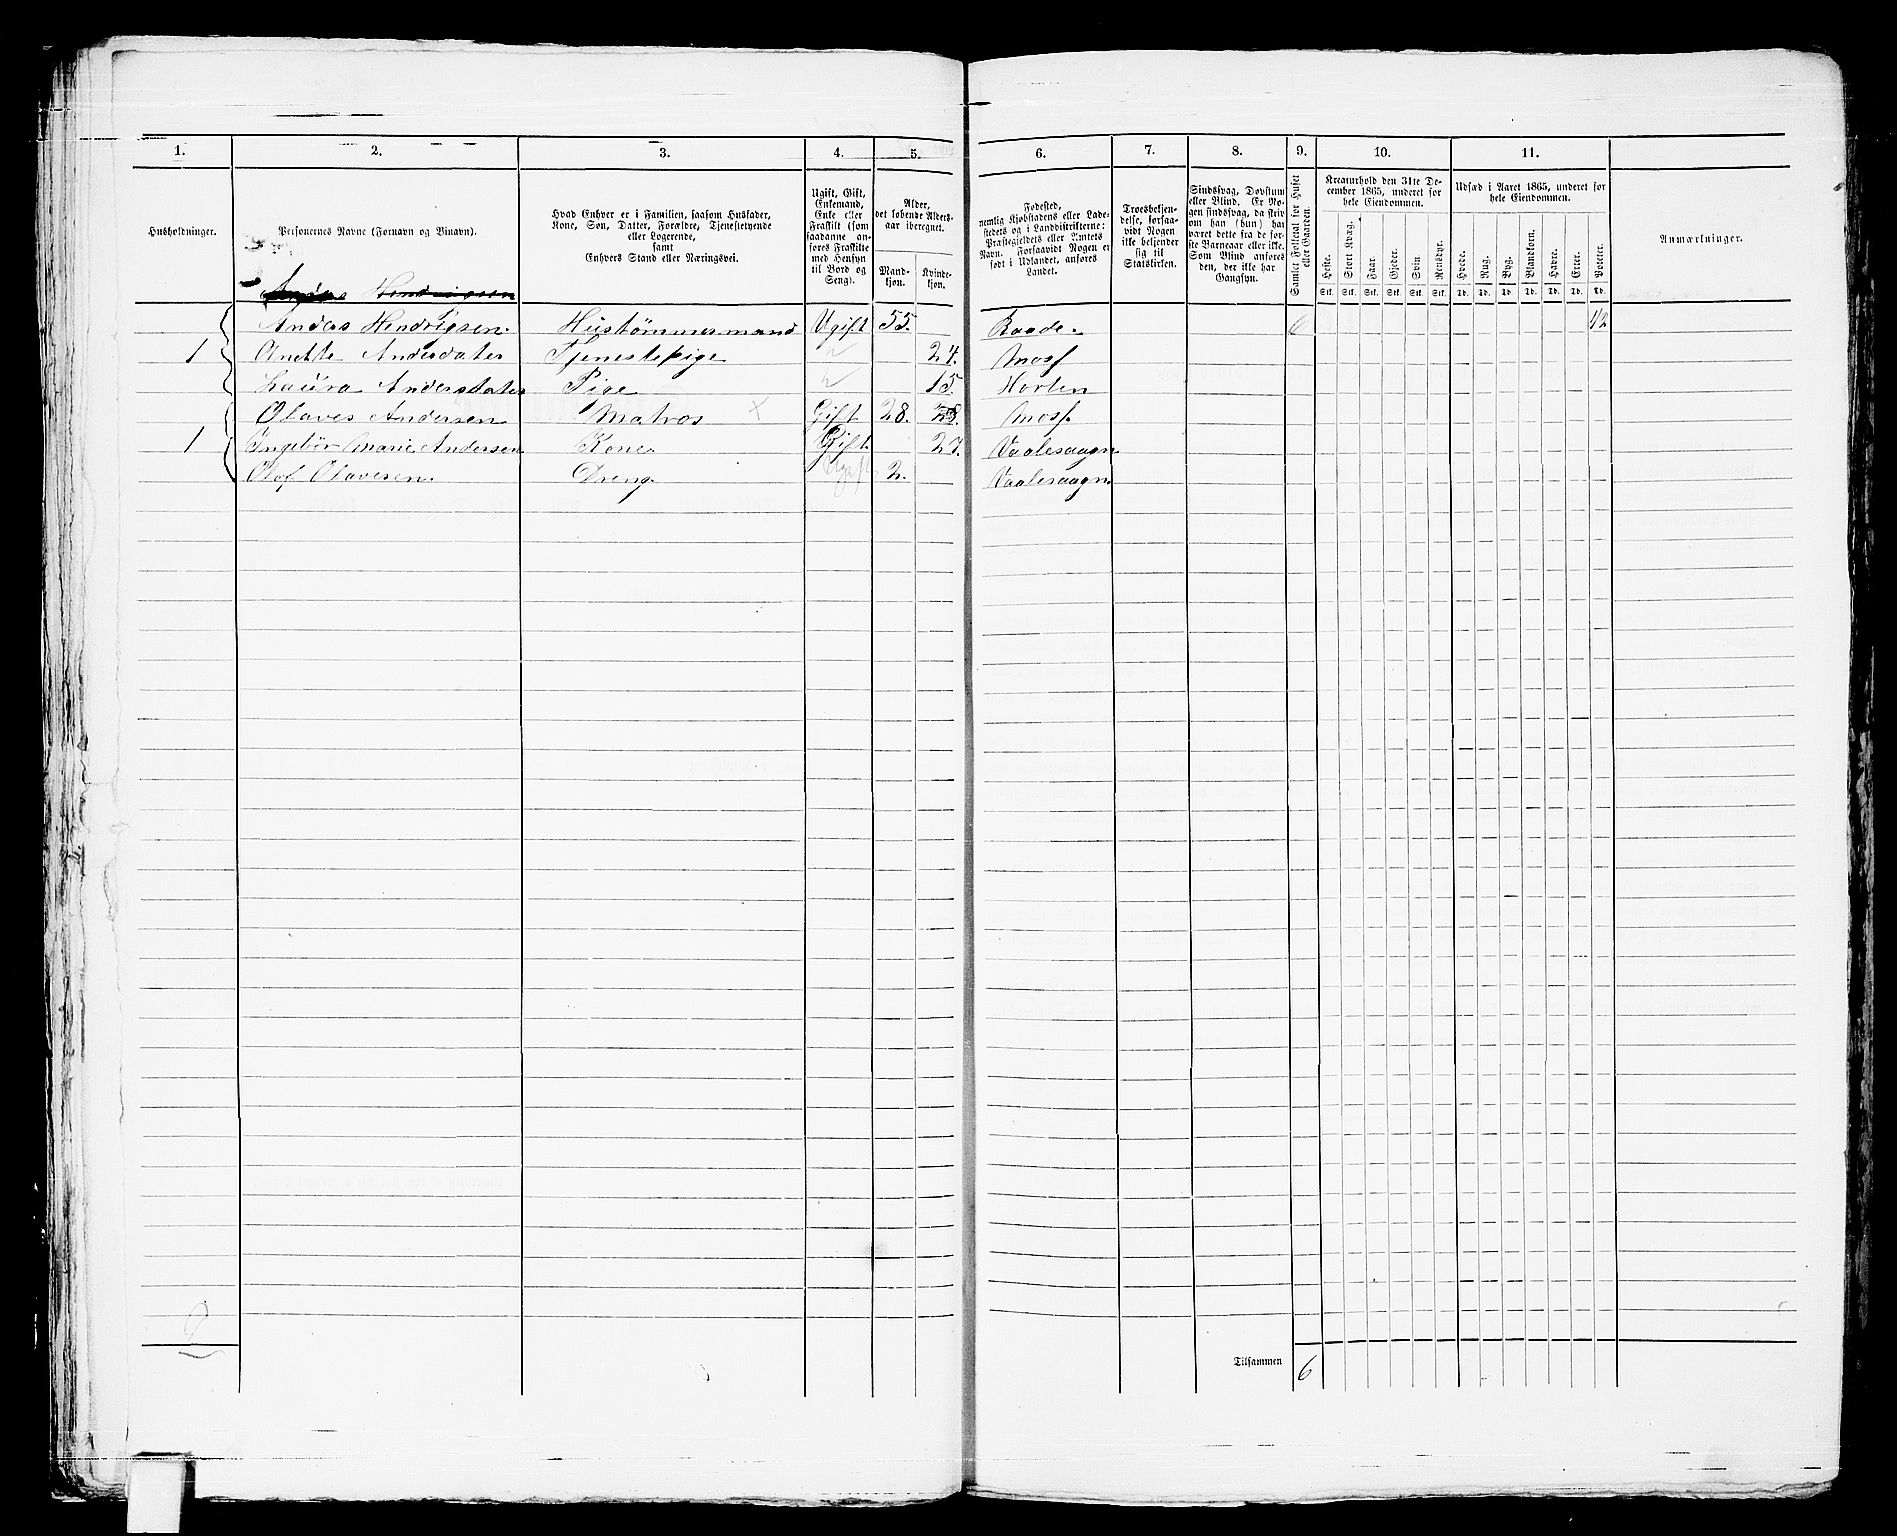 1. 2. 3. 4. 5. 6. 7. 8. 9. 10. 11.
Husholdninger.
Personernes Navne (Fornavn og Vinavn).
Hvad Enhver er i Familien, saasom Husfader,
Kone, Søn, Datter, Forældre, Tjenestetyende
eller Logerende,
samt
Enhvers Stand eller Næringsvei.
Ugift, Gift,
Enkemand,
Enke eller
Fraskilt (som
saadanne an-
føres Fraskilte
med Hensyn
til Bord og
Seng).
Alder,
det løbende Alders-
aar iberegnet.
Mand-
kjøn.
Kvinde-
kjøn.
Fødested,
nemlig Kjøbstadens eller Lade-
stedets og i Landdistrikterne:
Præstegjeldets eller Amtets
Navn. Forsaavidt Nogen er
født i Udlandet, anføres
Landet.
Troesbekjen-
delse, forsaa-
vidt Nogen
ikke bekjender
sig til
Statskirken.
Sindssvag, Døvstum
eller Blind. Er No-
gen sindssvag, da skriv
om han (hun) har
været dette fra de før-
ste Barneaar eller ikke.
Som Blind anføres
den, der ikke har
Gangsyn.
Samlet Folketal for Huset
eller Gaarden.
Kreaturhold den 31te De-
cember 1865, underet for
hele Eiendommen.
Heste. Stort Kvæg. Faar. Gjeder. Svin Rensdyr.
Stk. Stk. Stk. Stk. Stk. Stk.
Udsæd i Aaret 1865, underet for
hele Eiendommen.
Hvede. Rug. Byg. Blandkorn. Havre. Erter. Poteter.
Td. Td. Td. Td. Td. Td. Td.
Anmærkninger.
Anders Hendrigsen
Anders Hendrigsen. Hustømmesmand Ugift 55. Raade. 6 1/2
1 Anette Andersdater Tjenestepige 24. Moss
Laura Andersdater Pige 15. Horten
Olaves Andersen Matros × Gift 28. Moss.
1 Ingebør Marie Andersen Kone Gift. 27. Vaalesaagn
Olof Olavesen. Dreng Ugift 2. Vaalesaagn.
2
Tilsammen 6